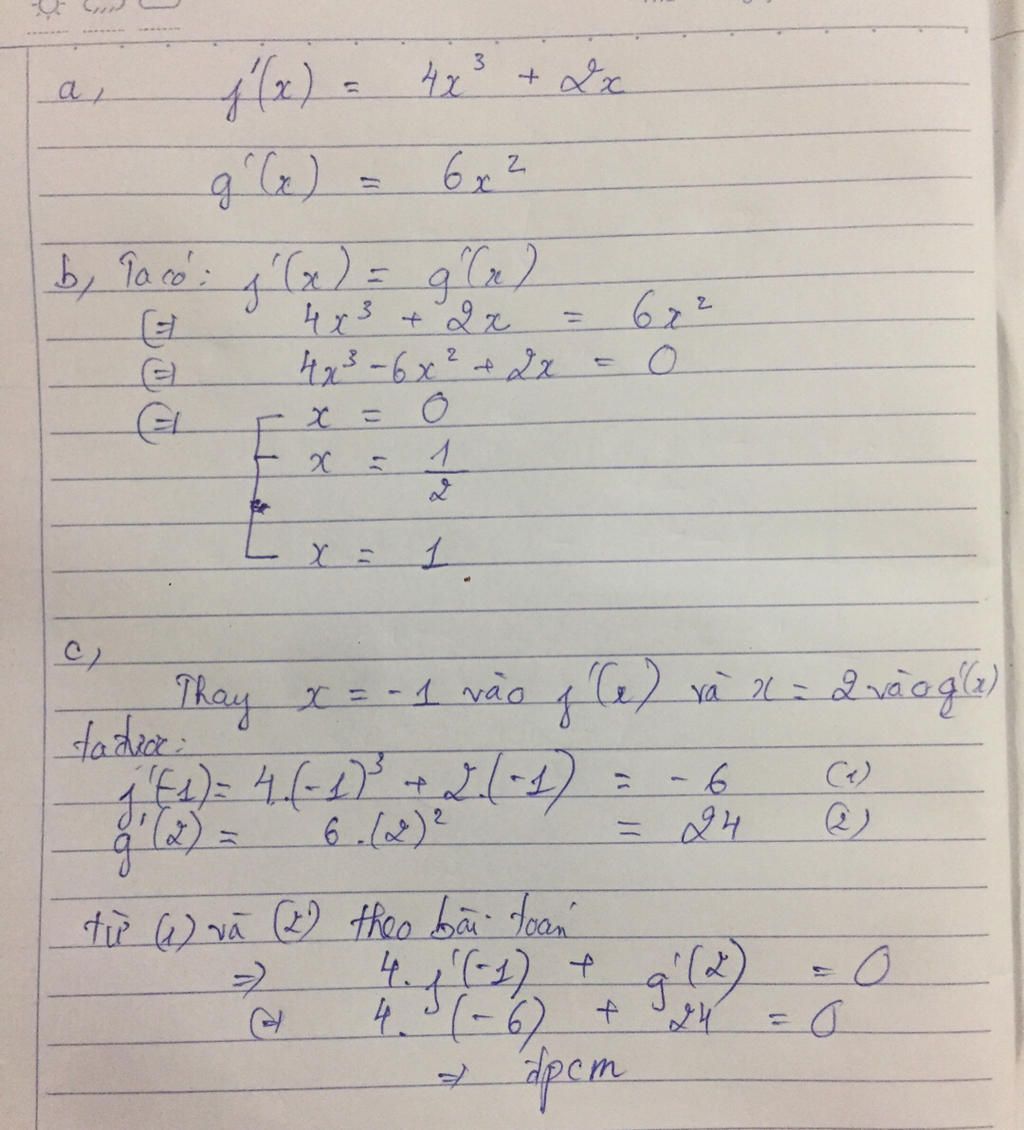 a, f'(x) = 4x³ + 2x
g'(x) = 6x²
b, Ta có: f'(x) = g'(x)
(=) 4x³ + 2x = 6x²
(=) 4x³ - 6x² + 2x = 0
(=) x = 0
x = 1/2
x = 1
c,
Thay x = -1 vào f'(x) và x = 2 vào g'(x)
ta được:
f'(-1) = 4.(-1)³ + 2.(-1) = -6 (1)
g'(2) = 6.(2)² = 24 (2)
từ (1) và (2) theo bài toán
=> 4.f'(-1) + g'(2) = 0
(=) 4. (-6) + 24 = 0
=> đpcm